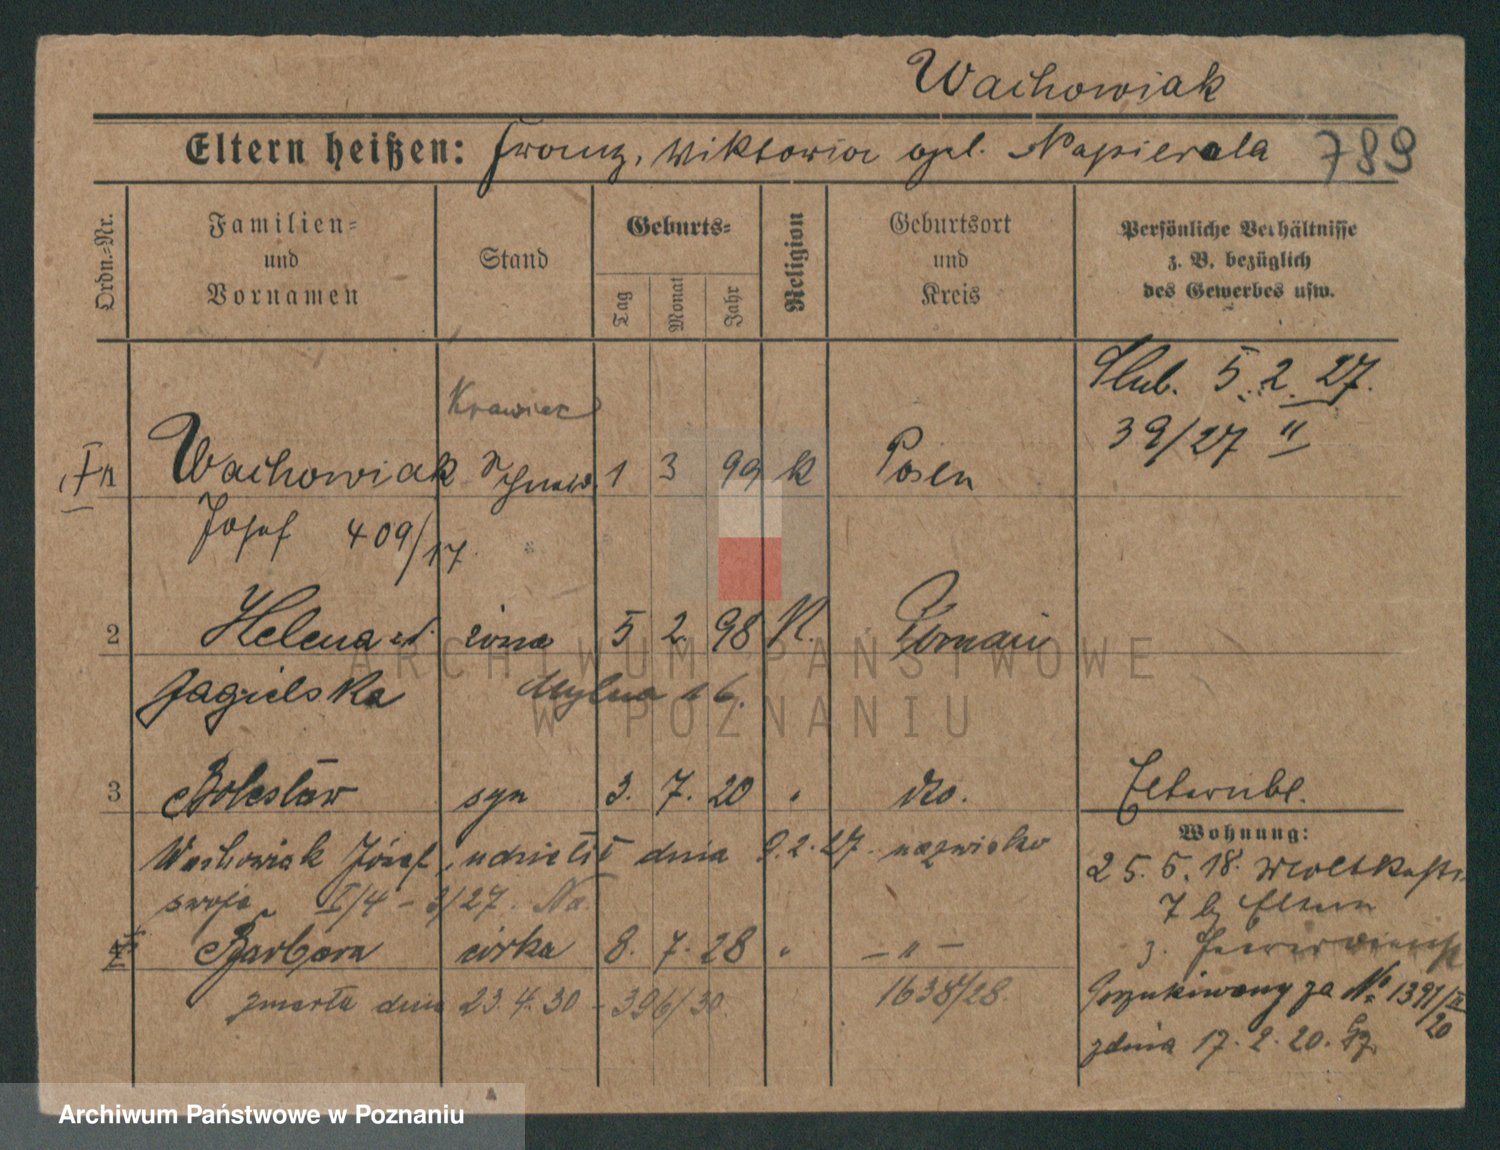 Wachowiak
Eltern heißen: Franz, Wiktoria gel. Napierala 789
Ordn.-Nr.
Familien-
und
Vornamen
Stand
Geburts-
Tag
Monat
Jahr
Religion
Geburtsort
und
Kreis
Persönliche Verhältnisse
z. B. bezüglich
des Gewerbes usw.
Slub. 5. 2. 27.
39/27 II
Krawiec
1 Wachowiak Schneid. 1 3 99 k Posen
Josef 409/17
2 Helena żona 5 2. 98 K. Poznań
Jagielska Mylna 16.
3 Bolesław syn 3. 7. 20 " dto.
Elternbl.
Wohnung:
Wachowiak Józef, udzielił dnia 9. 2. 27. nazwisko
swoje II/4 - 3/27. Na.
25. 5. 18. Moltkestr.
7 b/ Eltern
4 Barbara córka 8. 7. 28 " — " —
z. Feuerwehr
zmarła dnia 23. 4. 30 - 396/30. 1638/28.
Poszukiwany za No 1391/20
z dnia 17. 2. 20.
ARCHIWUM PAŃSTWOWE
W POZNANIU
Archiwum Państwowe w Poznaniu